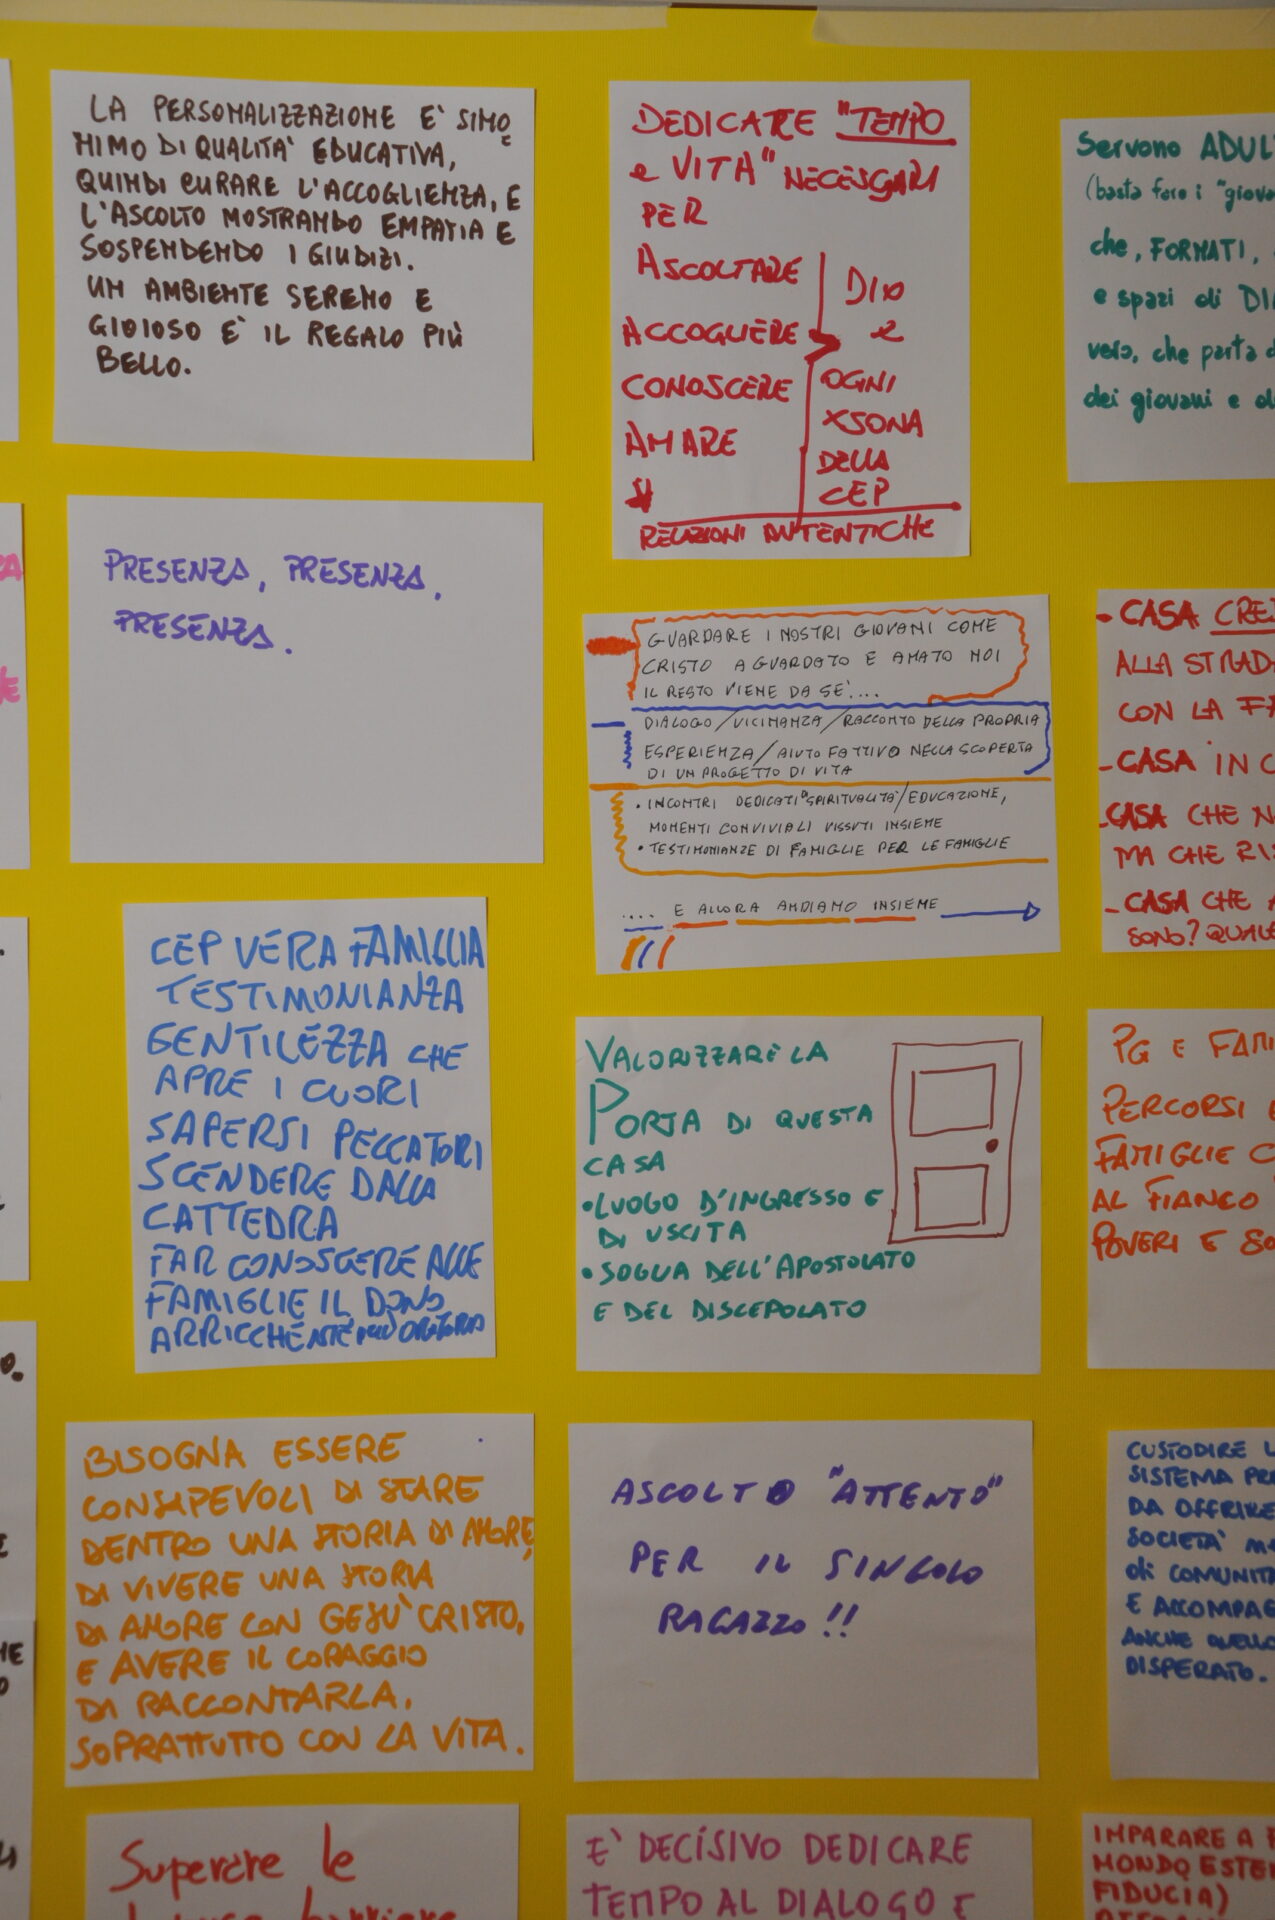 LA PERSONALIZZAZIONE E' SINO
NIMO DI QUALITA' EDUCATIVA,
QUINDI CURARE L'ACCOGLIENZA, E
L'ASCOLTO MOSTRANDO EMPATIA E
SOSPENDENDO I GIUDIZI.
UN AMBIENTE SERENO E
GIOIOSO E' IL REGALO PIÙ
BELLO.
DEDICARE "TEMPO
e VITA" NECESSARI
PER
ASCOLTARE
ACCOGLIERE
CONOSCERE
AMARE
DIO
e
OGNI
XSONA
DELLA
CEP
RELAZIONI AUTENTICHE
Servono ADUL
(basta fare i "giova
che, FORMATI,
e spazi di DI
vero, che parta d
dei giovani e d
PRESENZA, PRESENZA,
PRESENZA.
GUARDARE I NOSTRI GIOVANI COME
CRISTO A GUARDATO E AMATO NOI
IL RESTO VIENE DA SE'....
DIALOGO/VICINANZA/RACCONTO DELLA PROPRIA
ESPERIENZA/AIUTO FATTIVO NELLA SCOPERTA
DI UN PROGETTO DI VITA
• INCONTRI DEDICATI SPIRITUALITA'/EDUCAZIONE,
MOMENTI CONVIVIALI VISSUTI INSIEME
• TESTIMONIANZE DI FAMIGLIE PER LE FAMIGLIE
.... E ALLORA ANDIAMO INSIEME
- CASA CRE
ALLA STRAD
CON LA FA
- CASA IN C
- CASA CHE N
MA CHE RI
- CASA CHE A
SONO? QUALE
CEP VERA FAMIGLIA
TESTIMONIANZA
GENTILEZZA CHE
APRE I CUORI
SAPERSI PECCATORI
SCENDERE DALLA
CATTEDRA
FAR CONOSCERE ALLE
FAMIGLIE IL DONO
ARRICCHENTE DELL'ORATORIO
VALORIZZARE LA
PORTA DI QUESTA
CASA
• LUOGO D'INGRESSO E
DI USCITA
• SOGLIA DELL'APOSTOLATO
E DEL DISCEPOLATO
PG E FAMI
PERCORSI
FAMIGLIE C
AL FIANCO
POVERI E SO
BISOGNA ESSERE
CONSAPEVOLI DI STARE
DENTRO UNA STORIA DI AMORE,
DI VIVERE UNA STORIA
DI AMORE CON GESU' CRISTO,
E AVERE IL CORAGGIO
DI RACCONTARLA,
SOPRATTUTTO CON LA VITA.
ASCOLTO "ATTENTO"
PER IL SINGOLO
RAGAZZO!!
CUSTODIRE L
SISTEMA PRE
DA OFFRIRE
SOCIETA' M
di COMUNITA
E ACCOMPAG
ANCHE QUELLO
DISPERATO.
Superare le
E' DECISIVO DEDICARE
TEMPO AL DIALOGO E
IMPARARE A
MONDO ESTE
FIDUCIA)